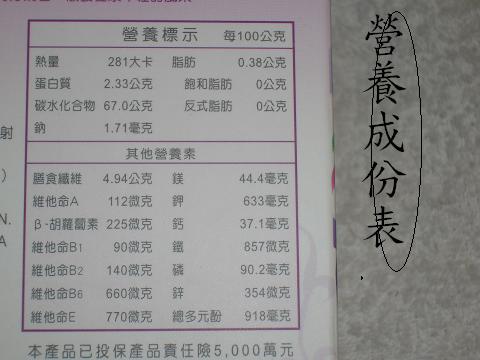 營養標示 每100公克
熱量 281大卡 脂肪 0.38公克
蛋白質 2.33公克 飽和脂肪 0公克
碳水化合物 67.0公克 反式脂肪 0公克
鈉 1.71毫克
其他營養素
膳食纖維 4.94公克 鎂 44.4毫克
維他命A 112微克 鉀 633毫克
β-胡蘿蔔素 225微克 鈣 37.1毫克
維他命B1 90微克 鐵 857微克
維他命B2 140微克 磷 90.2毫克
維他命B6 660微克 鋅 354微克
維他命E 770微克 總多元酚 918毫克
本產品已投保產品責任險5,000萬元
射
)
N.
A
營養成份表